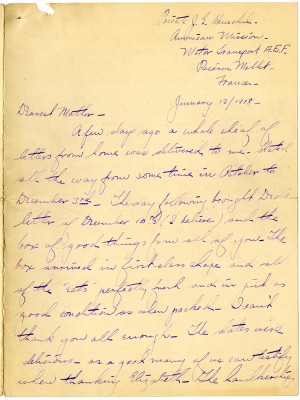 Private J. E.
American Mission.
Motor Transport A.E.F.
Réserve Mallet.
France.
January 13/1918 -
Dearest Mother -
A few days ago a whole sheaf of
letters from home was delivered to me - dated
all the way from some time in October to
December 3rd - The day following brought
letter of December 10th (I believe) and the
box of good things from all of you. The
box arrived in first class shape and all
of the "eats" perfectly and in just as
good condition as when packed. I can't
thank you all enough - The dates were
delicious - as a good many of us can testify
when thanking Elizabeth - The handkerchiefs,